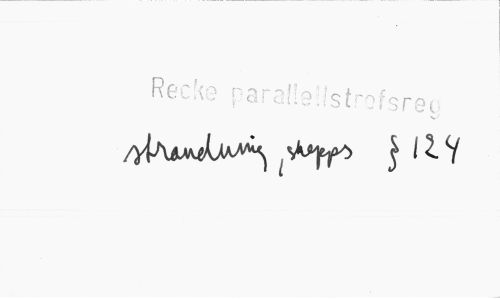 Recke parallellstrofsreg
strandning, skepps § 124